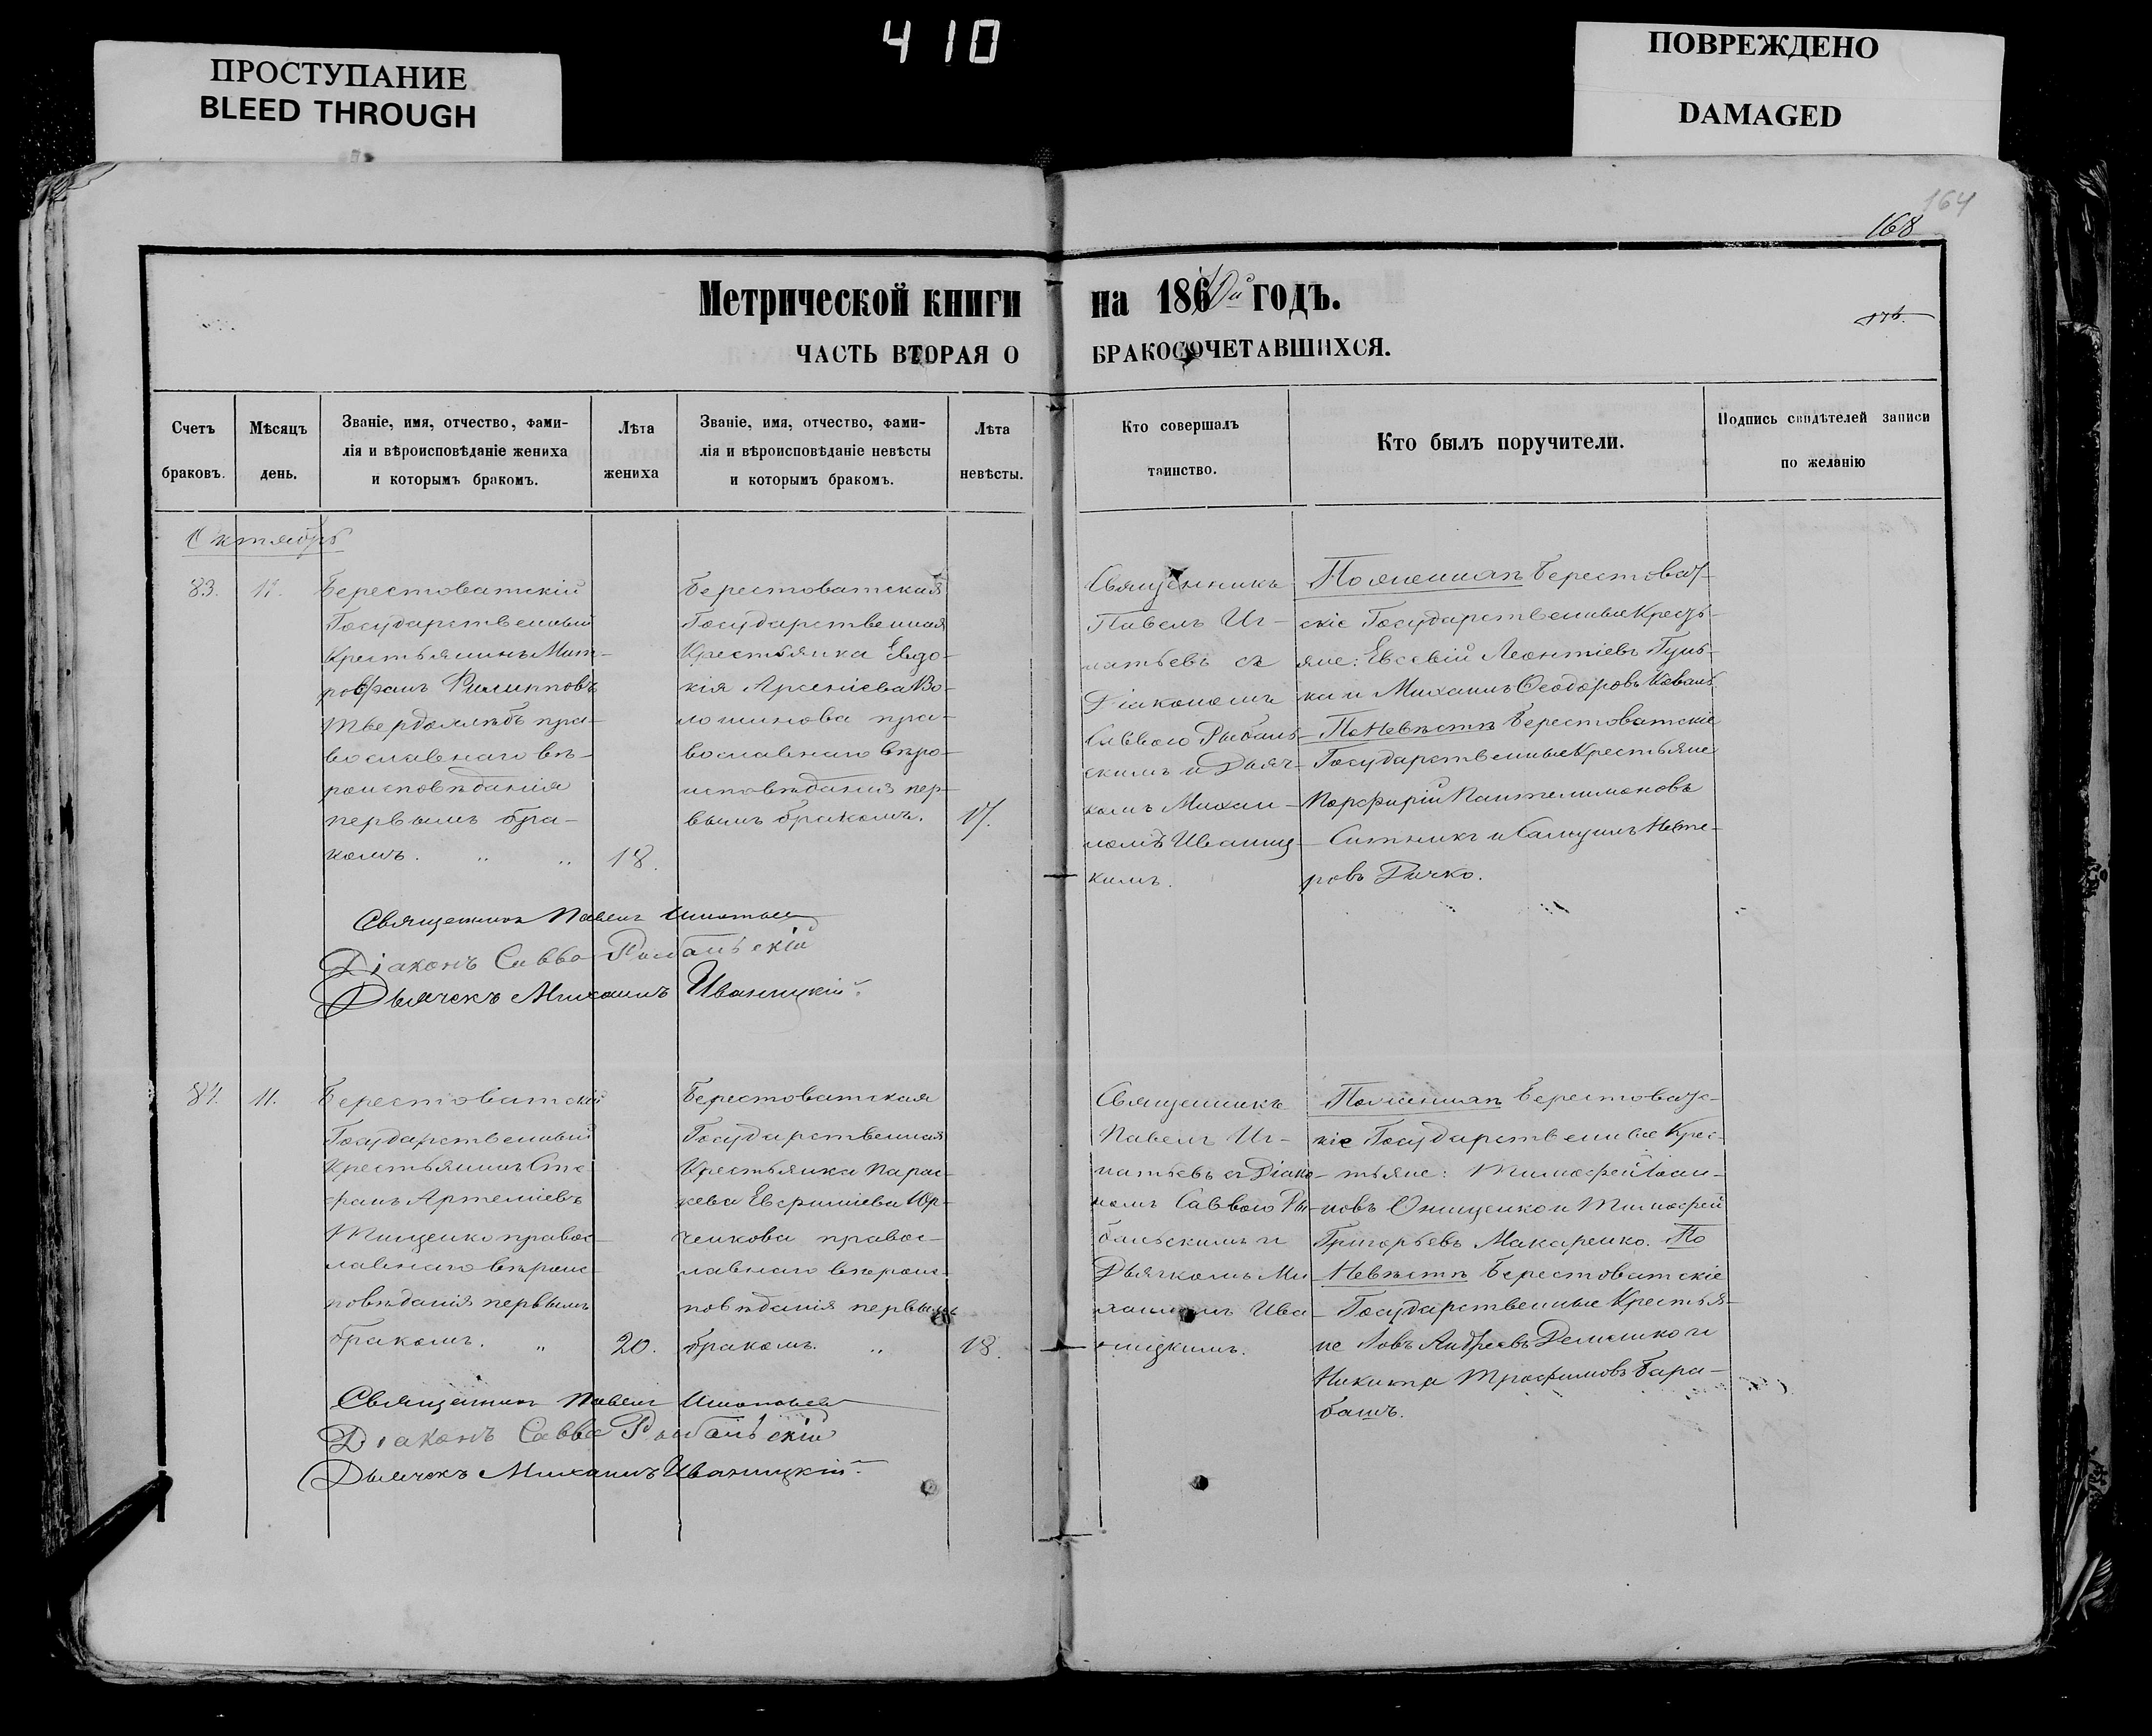 410
ПРОСТУПАНИЕ
BLEED THROUGH
ПОВРЕЖДЕНО
DAMAGED
164
168
Метрической книги на 186 годъ.
ЧАСТЬ ВТОРАЯ О БРАКОСОЧЕТАВШИХСЯ.
Счетъ браковъ.
Мѣсяцъ день.
Званіе, имя, отчество, фами-
лія и вѣроисповѣданіе жениха
и которымъ бракомъ.
Лѣта жениха
Званіе, имя, отчество, фами-
лія и вѣроисповѣданіе невѣсты
и которымъ бракомъ.
Лѣта невѣсты.
Кто совершалъ
таинство.
Кто былъ поручители.
Подпись свидѣтелей записи
по желанію
Октябрь
83.
11.
Берестоватскій
Государственный
Крестьянинъ Мит-
рофанъ Филипповъ
Твердохлѣбъ пра-
вославнаго вѣ-
роисповѣданія
первымъ бра-
комъ. " "
18.
Берестоватская
Государственная
Крестьянка Евдо-
кія Арсеніева Во-
лошинова пра-
вославнаго вѣро-
исповѣданія пер-
вымъ бракомъ.
17.
Священникъ
Павелъ Иг-
натьевъ съ
Діакономъ
Саввою Рыбаль-
скимъ и Дьяч-
комъ Михаи-
ломъ Иваниц-
кимъ.
По женихѣ Берестоват-
скіе Государственные Кресть-
яне: Евсевій Леонтіевъ Гунь-
ка и Михаилъ Ѳеодоровъ Коваль.
По Невѣстѣ Берестоватскіе
Государственные Крестьяне
Порфирій Пантелимоновъ
Ситникъ и Самуилъ Несте-
ровъ Дичко.
Священникъ Павелъ Игнатьевъ
Діаконъ Савва Рыбальскій
Дьячекъ Михаилъ Иваницкій.
84.
11.
Берестоватскій
Государственный
Крестьянинъ Сте-
фанъ Артеміевъ
Тищенко правос-
лавнаго вѣроис-
повѣданія первымъ
бракомъ. "
20.
Берестоватская
Государственная
Крестьянка Парас-
кева Евфиміева Юр-
ченкова правос-
лавнаго вѣроис-
повѣданія первымъ
бракомъ. "
18.
Священникъ
Павелъ Иг-
натьевъ съ Діако-
номъ Саввою Ры-
бальскимъ и
Дьячкомъ Ми-
хаиломъ Ива-
ницкимъ.
По женихѣ Берестоватс-
кіе Государственные Крес-
тьяне: Тимофей Іоан-
новъ Онищенко и Тимофей
Григорьевъ Макаренко. По
Невѣстѣ Берестоватскіе
Государственные Крестья-
не Іовъ Андреевъ Деменко и
Никита Трофимовъ Бара-
башъ.
Священникъ Павелъ Игнатьевъ
Діаконъ Савва Рыбальскій
Дьячекъ Михаилъ Иваницкій.